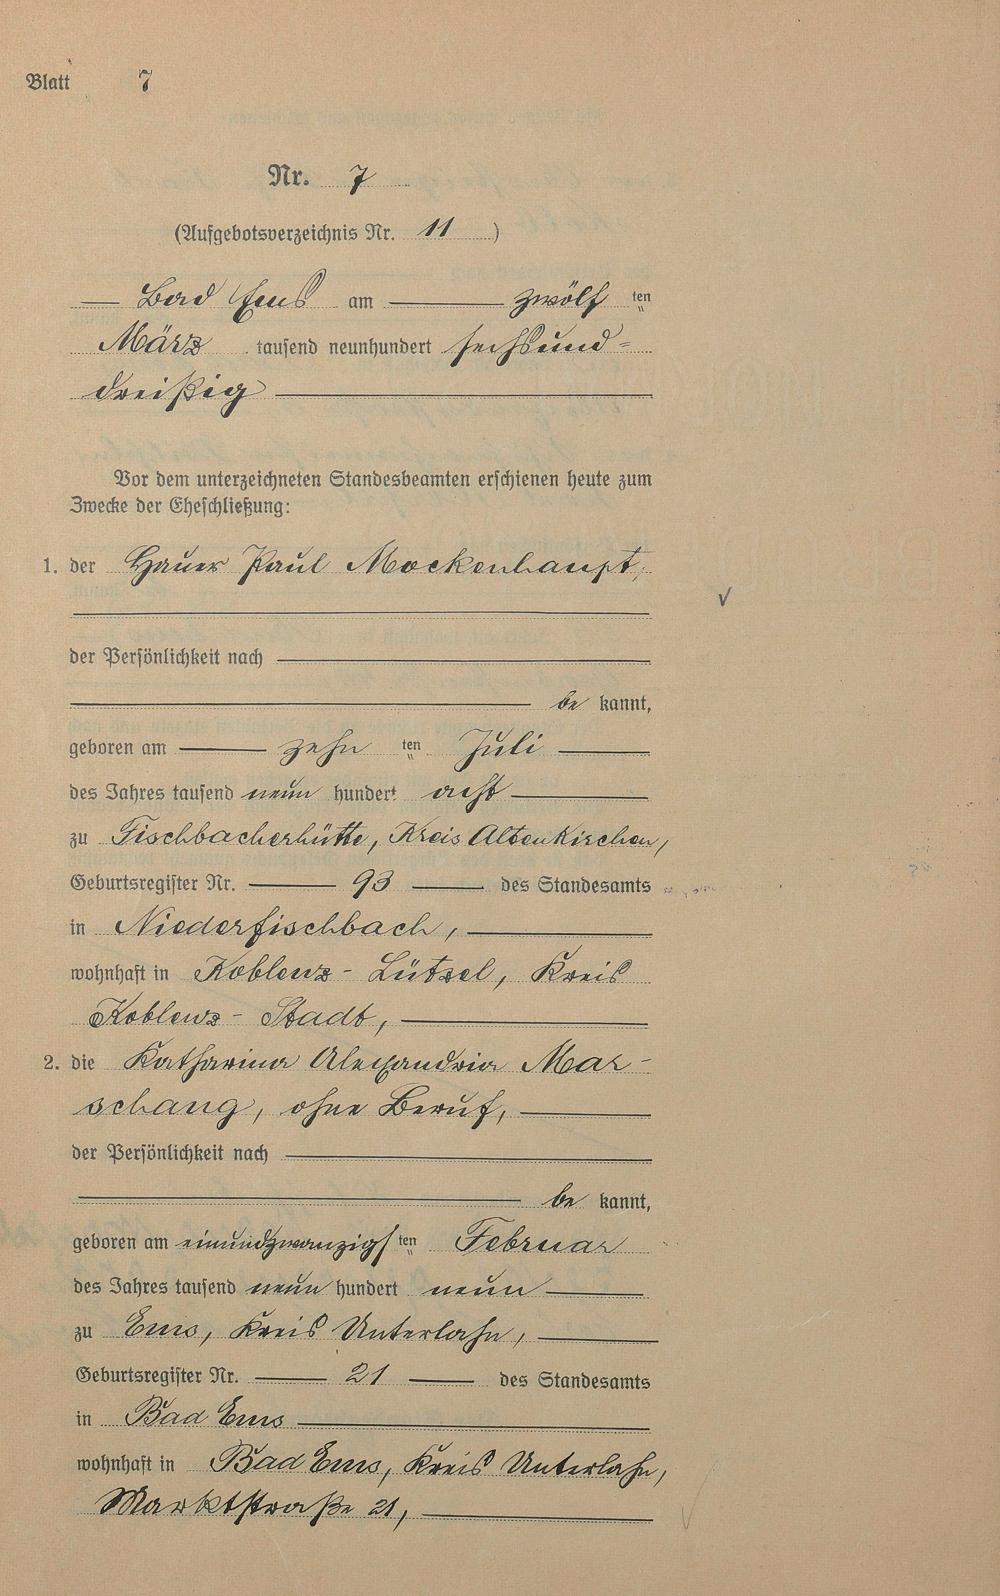 Blatt 7
Nr. 7
(Aufgebotsverzeichnis Nr. 11 )
Bad Ems am zwölf ten
März tausend neunhundert sechsund-
dreißig
Vor dem unterzeichneten Standesbeamten erschienen heute zum
Zwecke der Eheschließung:
1. der Hauer Paul Mockenhaupt,
der Persönlichkeit nach
be kannt,
geboren am zehn ten Juli
des Jahres tausend neun hundert acht
zu Fischbacherhütte, Kreis Altenkirchen,
Geburtsregister Nr. 93 des Standesamts
in Niederfischbach,
wohnhaft in Koblenz-Lützel, Kreis
Koblenz-Stadt,
2. die Katharina Alexandria Mar-
schang, ohne Beruf,
der Persönlichkeit nach
be kannt,
geboren am einundzwanzigsten Februar
des Jahres tausend neun hundert neun
zu Ems, Kreis Unterlahn,
Geburtsregister Nr. 21 des Standesamts
in Bad Ems
wohnhaft in Bad Ems, Kreis Unterlahn,
Marktstraße 21,